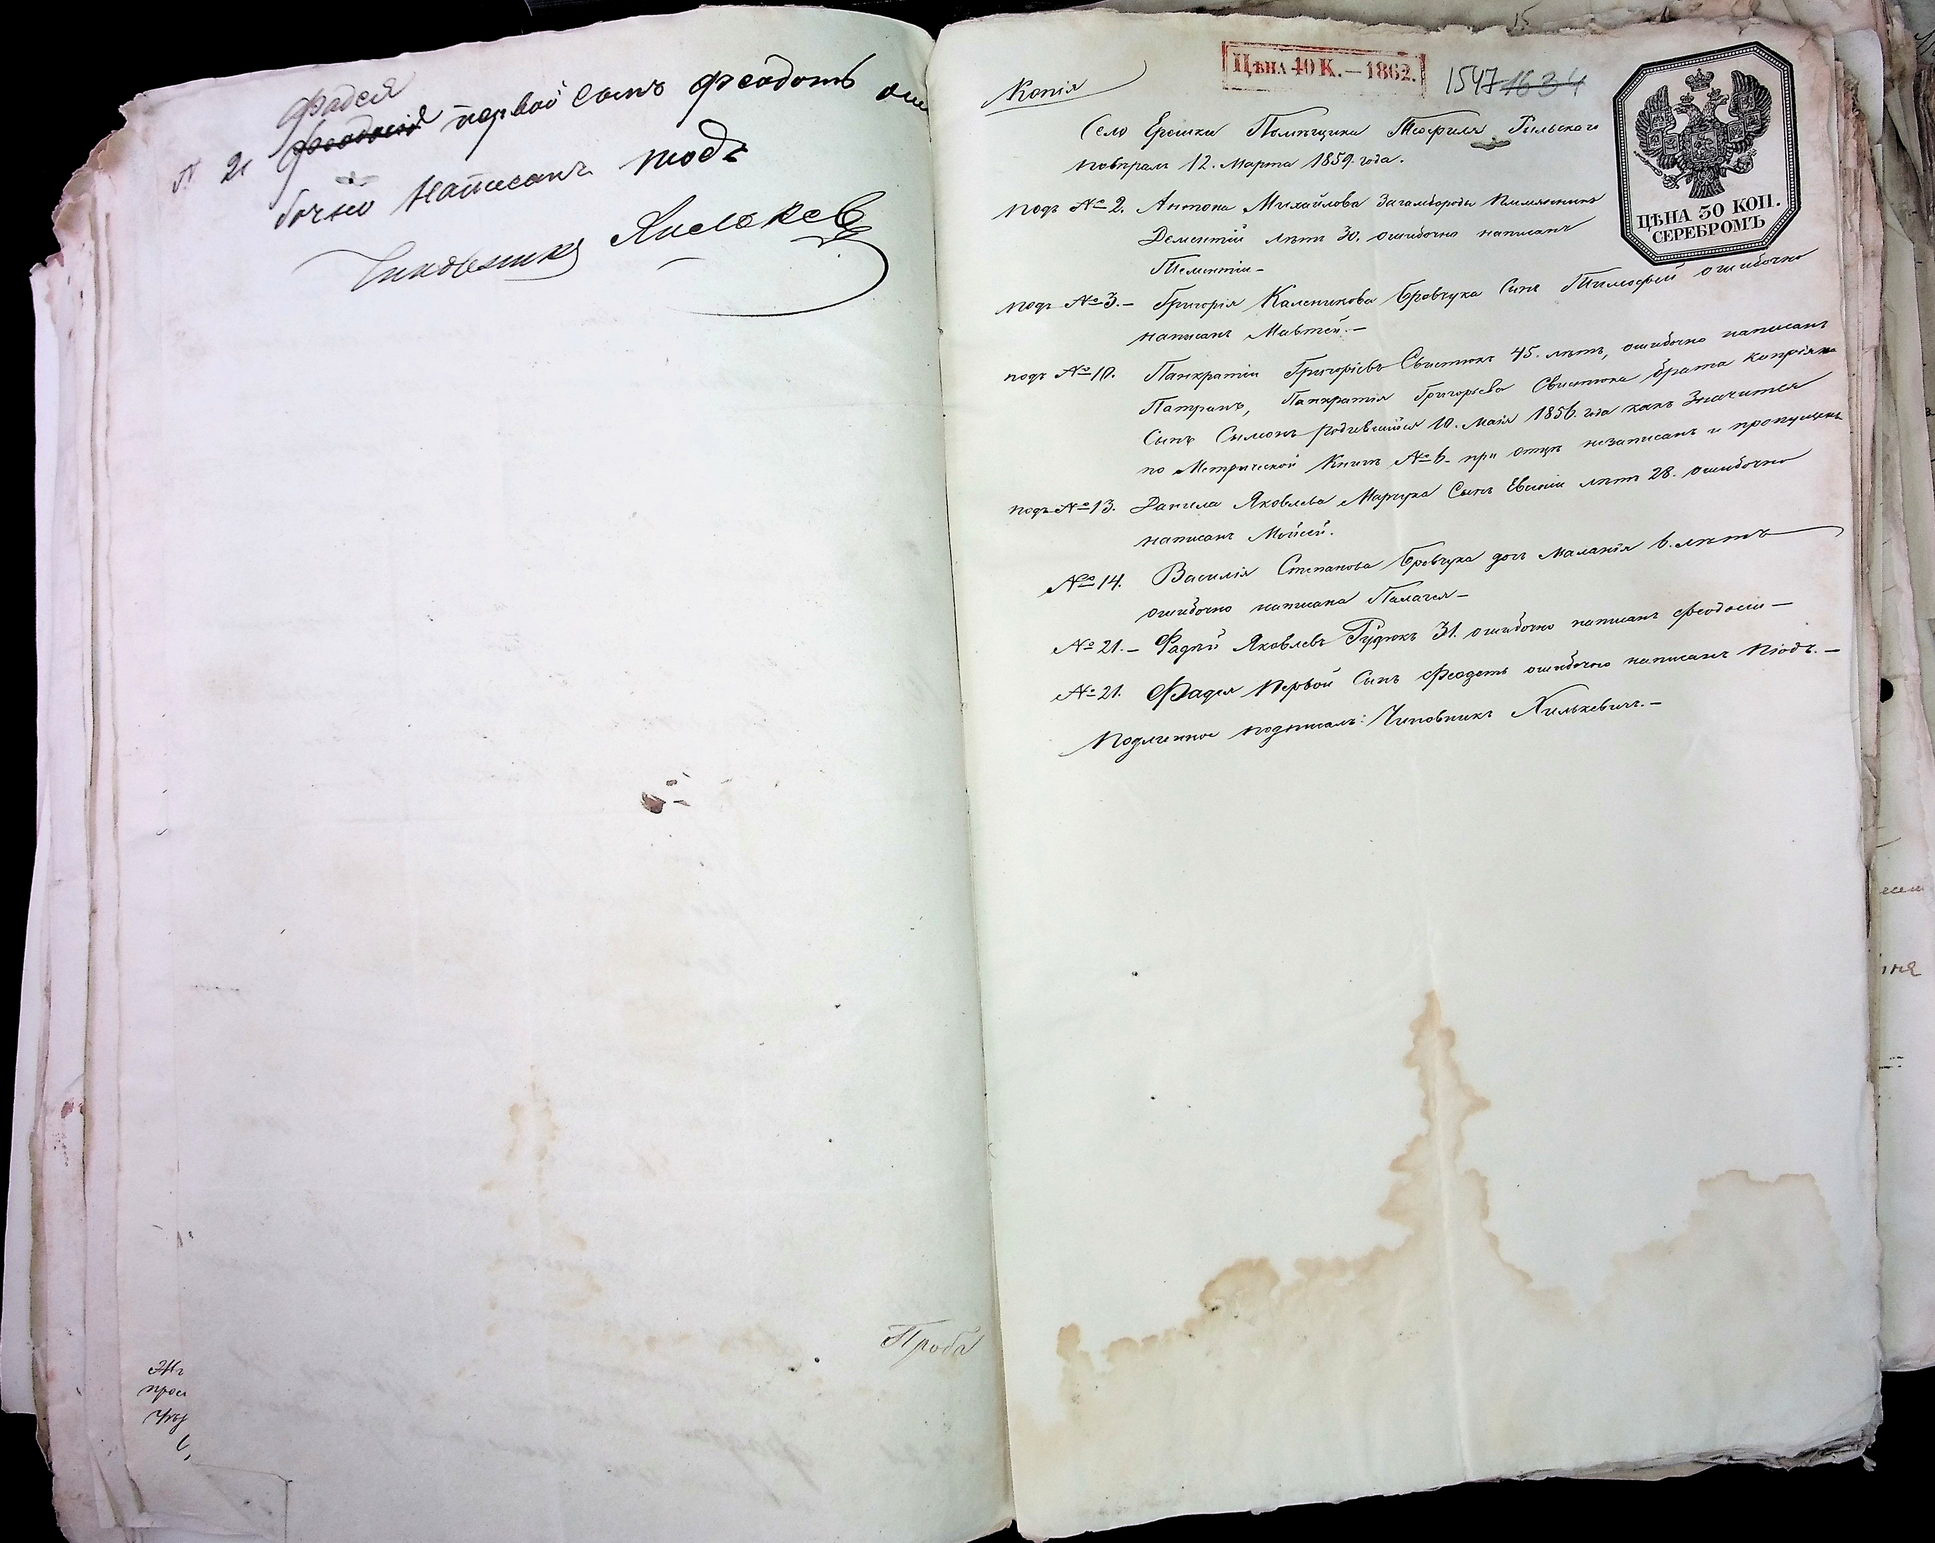 Фадея
№ 21 Феодосій первой сынъ Феодотъ оши
бочно написанъ тодъ
Чиновникъ
Проба
Копія
Цѣна 40 К. — 1862.
1547 1634
ЦѢНА 30 КОП.
СЕРЕБРОМЪ
Село Ерешки Помѣщика Теофиля Рыльскаго
повѣрялъ 12. Марта 1859. года.
подъ № 2. Антона Михайлова Загамбороды племянникъ
Дементій лѣтъ 30. ошибочно написанъ
Тементій —
подъ № 3. — Григорія Каленикова Бровчука Сынъ Тимофей ошибочно
написанъ Мавтей. —
подъ № 10. Панкратій Григорьевъ Свистюкъ 45. лѣтъ, ошибочно написанъ
Патранъ, Панкратія Григорьева Свистюка брата Копріяна
Сынъ Сымонъ родившійся 10. Мая 1856. года какъ Значится
по Метрической Книгѣ № 6. при отцѣ незаписанъ и пропущенъ
подъ № 13. Данила Яковлева Марчука Сынъ Евсей лѣтъ 28. ошибочно
написанъ Мойсей.
№ 14. Василія Степанова Бровчука дочь Маланія 6. лѣтъ
ошибочно написана Палагея —
№ 21. — Фадѣй Яковлевъ Гудзюкъ 31. ошибочно написанъ Феодосій —
№ 21. Фадея Первой Сынъ Феодотъ ошибочно написанъ Тіодъ. —
Подленное подписалъ: Чиновникъ Хилькевичъ. —